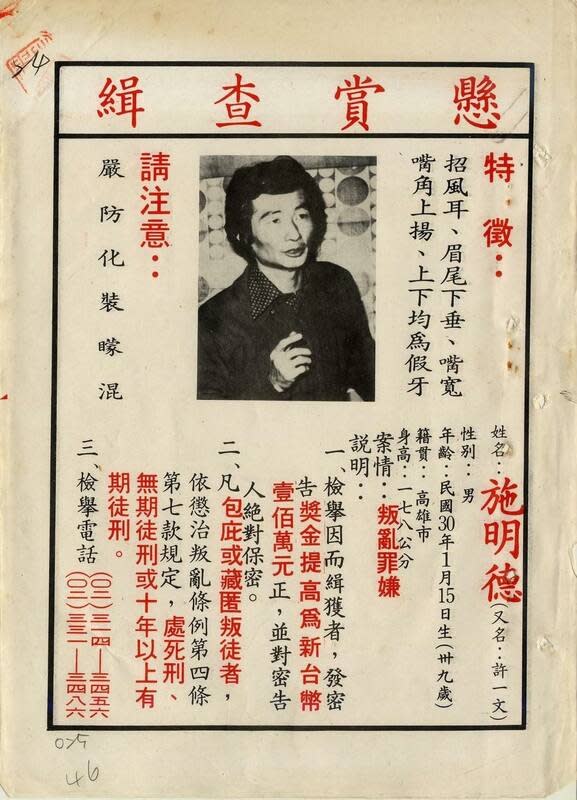 懸賞查緝
特徵：
招風耳、眉尾下垂、嘴寬
嘴角上揚、上下均為假牙
請注意：
嚴防化裝矇混
姓名：施明德(又名：許一文)
性別：男
年齡：民國30年1月15日生(卅九歲)
籍貫：高雄市
身高：一七八公分
案情：叛亂罪嫌
說明：
一、檢舉因而緝獲者，發密
告獎金提高為新台幣
壹佰萬元正，並對密告
人絕對保密。
二、凡包庇或藏匿叛徒者，
依懲治叛亂條例第四條
第七款規定，處死刑、
無期徒刑或十年以上有
期徒刑。
三、檢舉電話
(〇二)三一四—三四五六
(〇二)三三一—三四八六
54
46